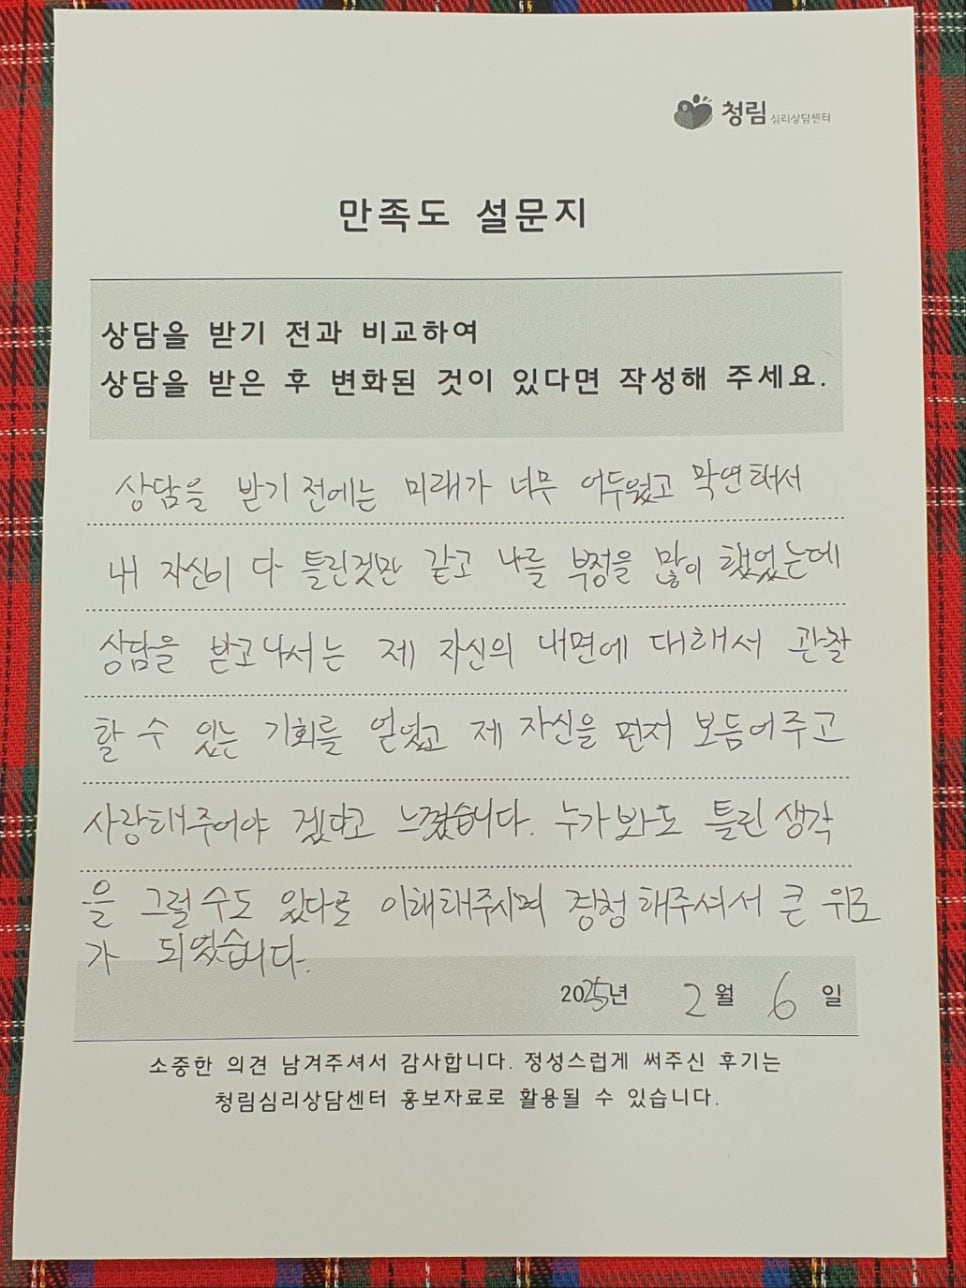 청림 심리상담센터
만족도 설문지
상담을 받기 전과 비교하여
상담을 받은 후 변화된 것이 있다면 작성해 주세요.
상담을 받기 전에는 미래가 너무 어두웠고 막연해서
내 자신이 다 틀린것만 같고 나를 부정을 많이 했었는데
상담을 받고나서는 제 자신의 내면에 대해서 관찰
할 수 있는 기회를 얻었고 제 자신을 먼저 보듬어주고
사랑해주어야 겠다고 느꼈습니다. 누가봐도 틀린 생각
을 그럴수도 있다로 이해해주시며 경청해주셔서 큰 위로
가 되었습니다.
2025년 2월 6일
소중한 의견 남겨주셔서 감사합니다. 정성스럽게 써주신 후기는
청림심리상담센터 홍보자료로 활용될 수 있습니다.